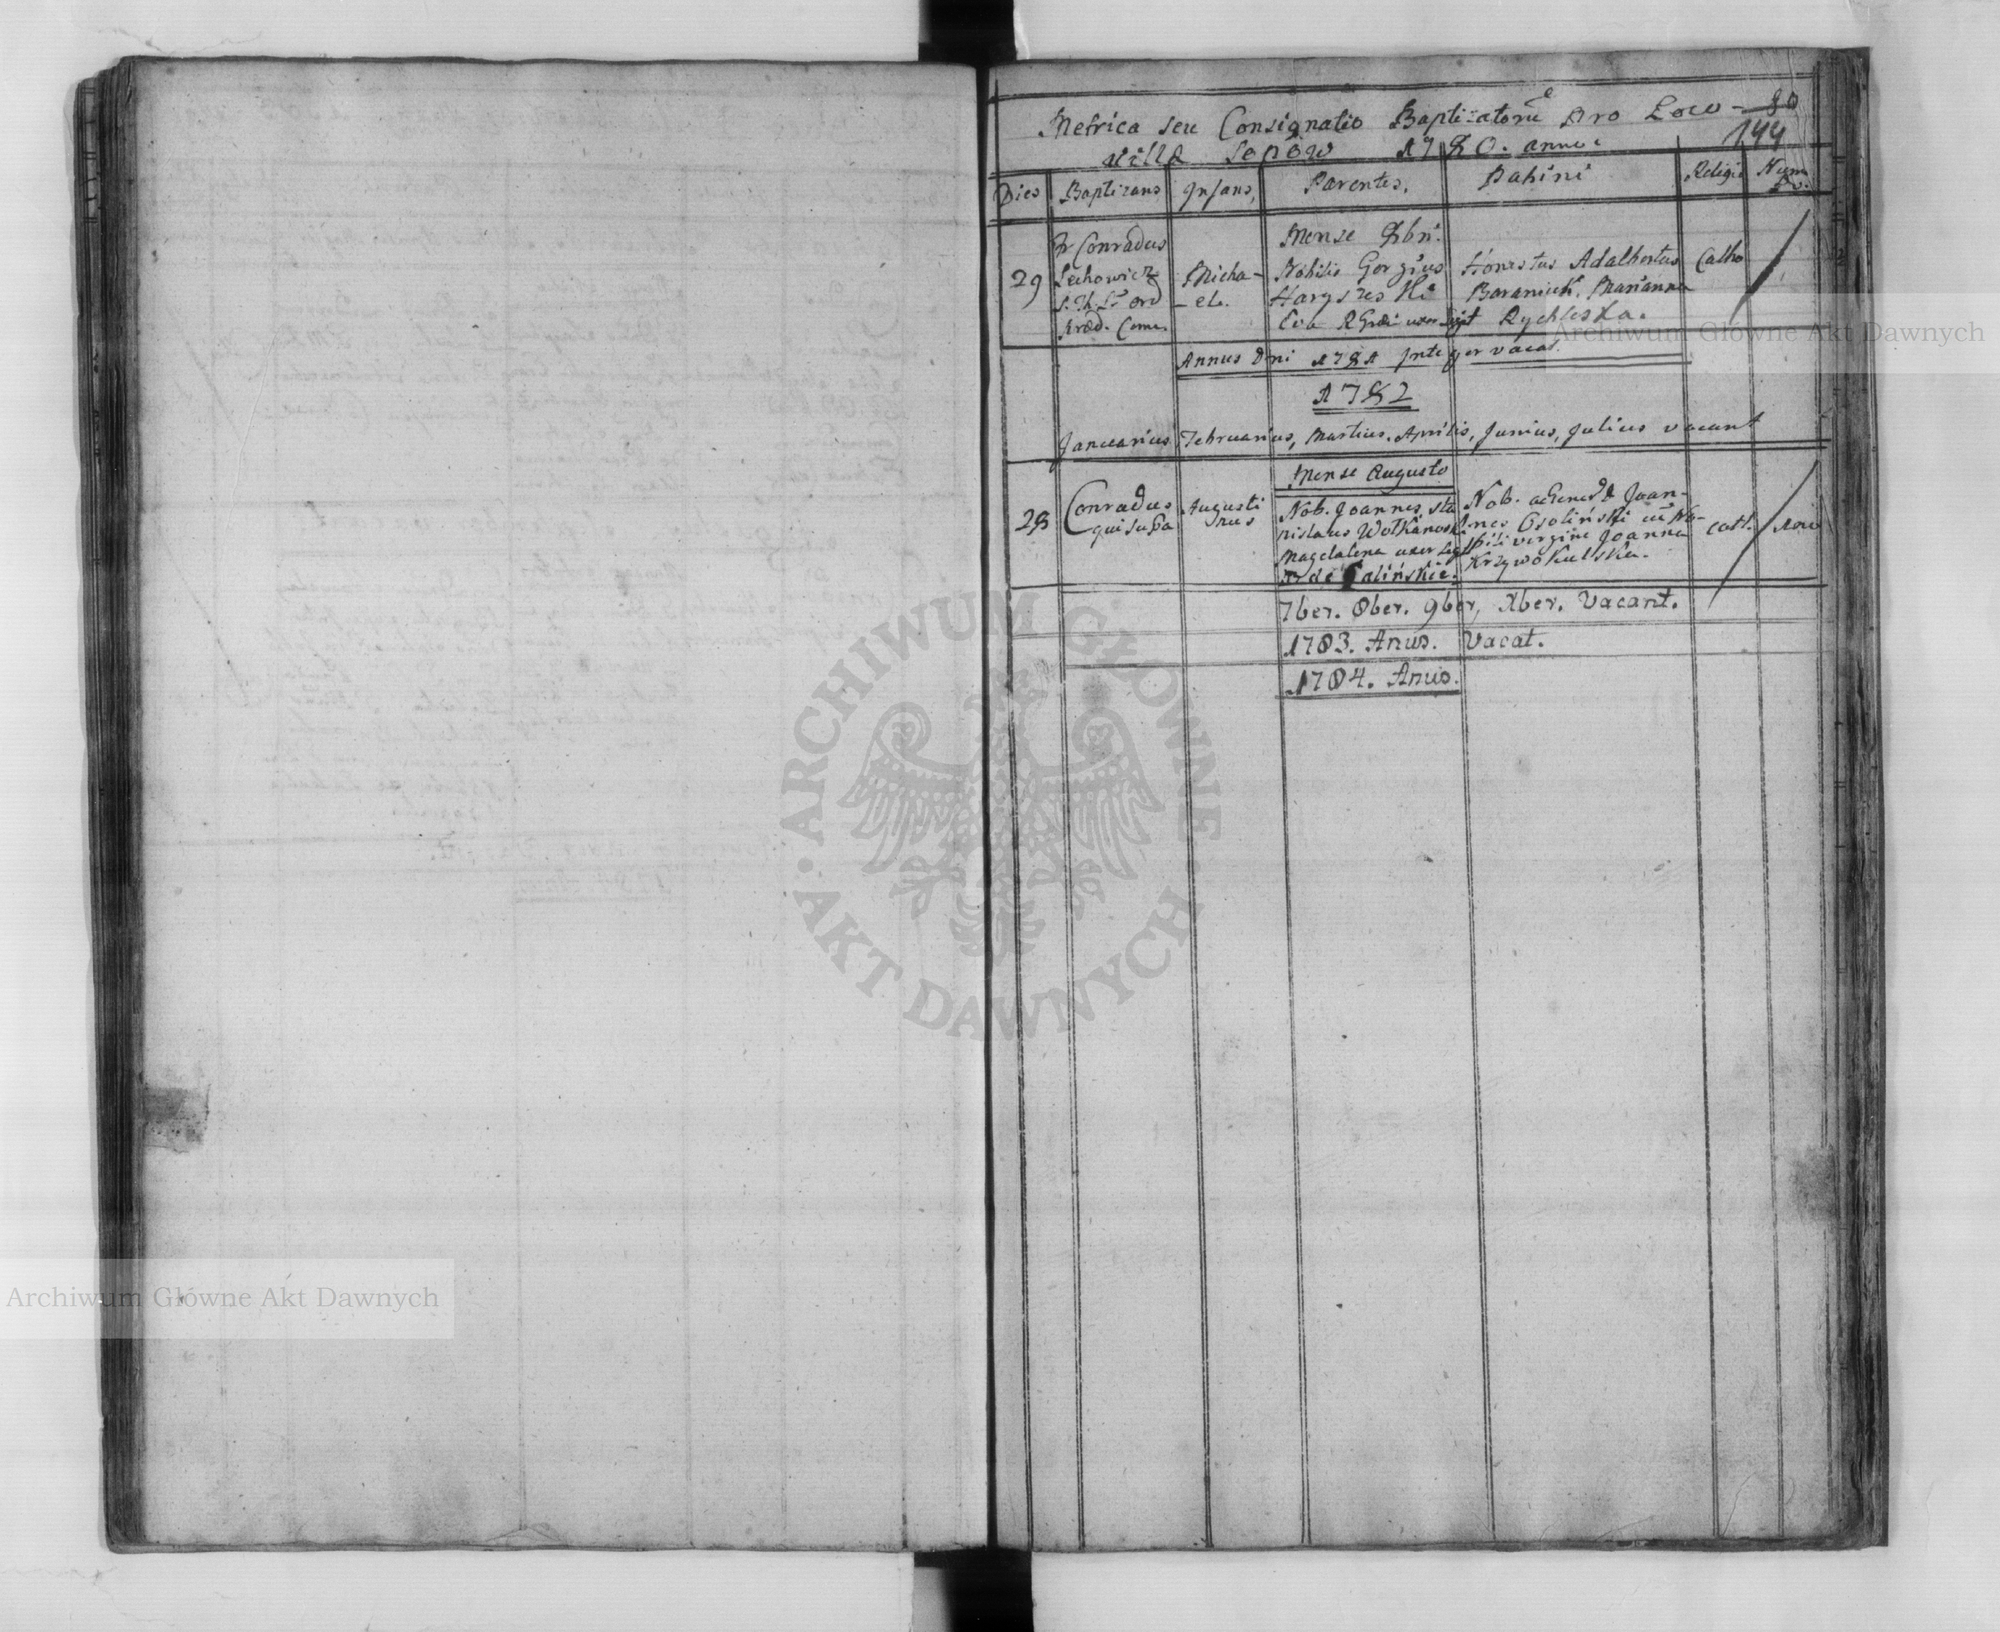 Metrica seu Consignatio Baptizatorū Pro Loco
80
144
villa Sopow 1780. anno
Dies Baptizans Infans, Parentes, Patrini Religio Num Do.
Mense Xbri.
29
Fr Conradus
Lechowicz
S. Th. Lr. Ord
Præd. Come.
Micha-
-ele.
Nobilis Gorgius
Haryszeski
Eva R Græci uxor legit
Honestus Adalbertus
Baraniuk, Marianna
Rychleska.
Catho
Annus Dni 1781 Integer vacat.
1782
Januarius Februarius, Martius, Aprilis, Junius, Julius vacant
Mense Augusto
28
Conradus
qui supa
Augusti
nus
Nob. Joannes, Sta
nislaus Wołkanoski
Magdalena uxor Legit
de Galińskie.
Nob. ac Generd D Joan-
nes Osoliński cū No-
bili virgine Joanna
Krzywokulska.
Catt.
7ber. 8ber. 9ber, Xber. Vacant.
1783. Anus. Vacat.
1784. Anus.
ARCHIWUM GŁÓWNE
AKT DAWNYCH
Archiwum Główne Akt Dawnych
Archiwum Główne Akt Dawnych